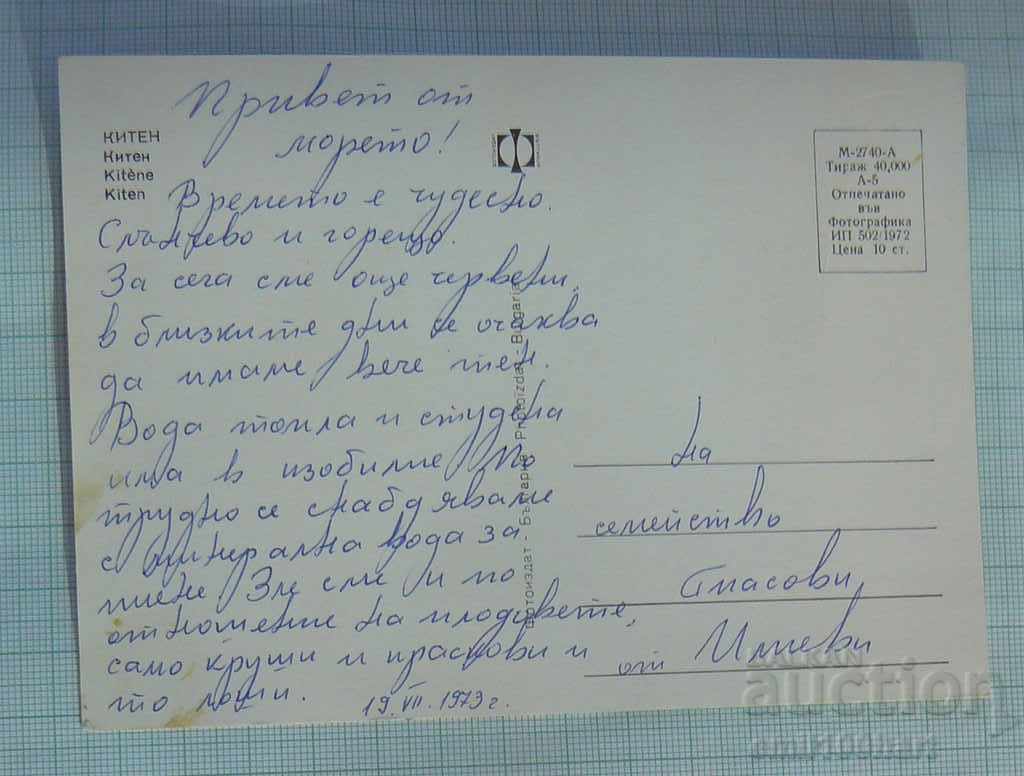 КИТЕН
Китен
Kitène
Kiten
Привет от
морето!
Времето е чудесно.
Слънчево и горещо.
За сега сме още червени,
в близките дни се очаква
да имаме вече тен.
Вода топла и студена
има в изобилие. По
трудно се снабдяваме
с минерална вода за
пиене. Зле сме и по
отношение на плодовете,
само круши и праскови и
то лоши.
19.VII.1973 г.
Фотоиздат - България - Photoizdat - Bulgaria
М-2740-А
Тираж 40,000
А-5
Отпечатано
във
Фотографика
ИП 502/1972
Цена 10 ст.
На
семейство
Спасови,
от Илиеви
BALKAN
auction
emir10chari